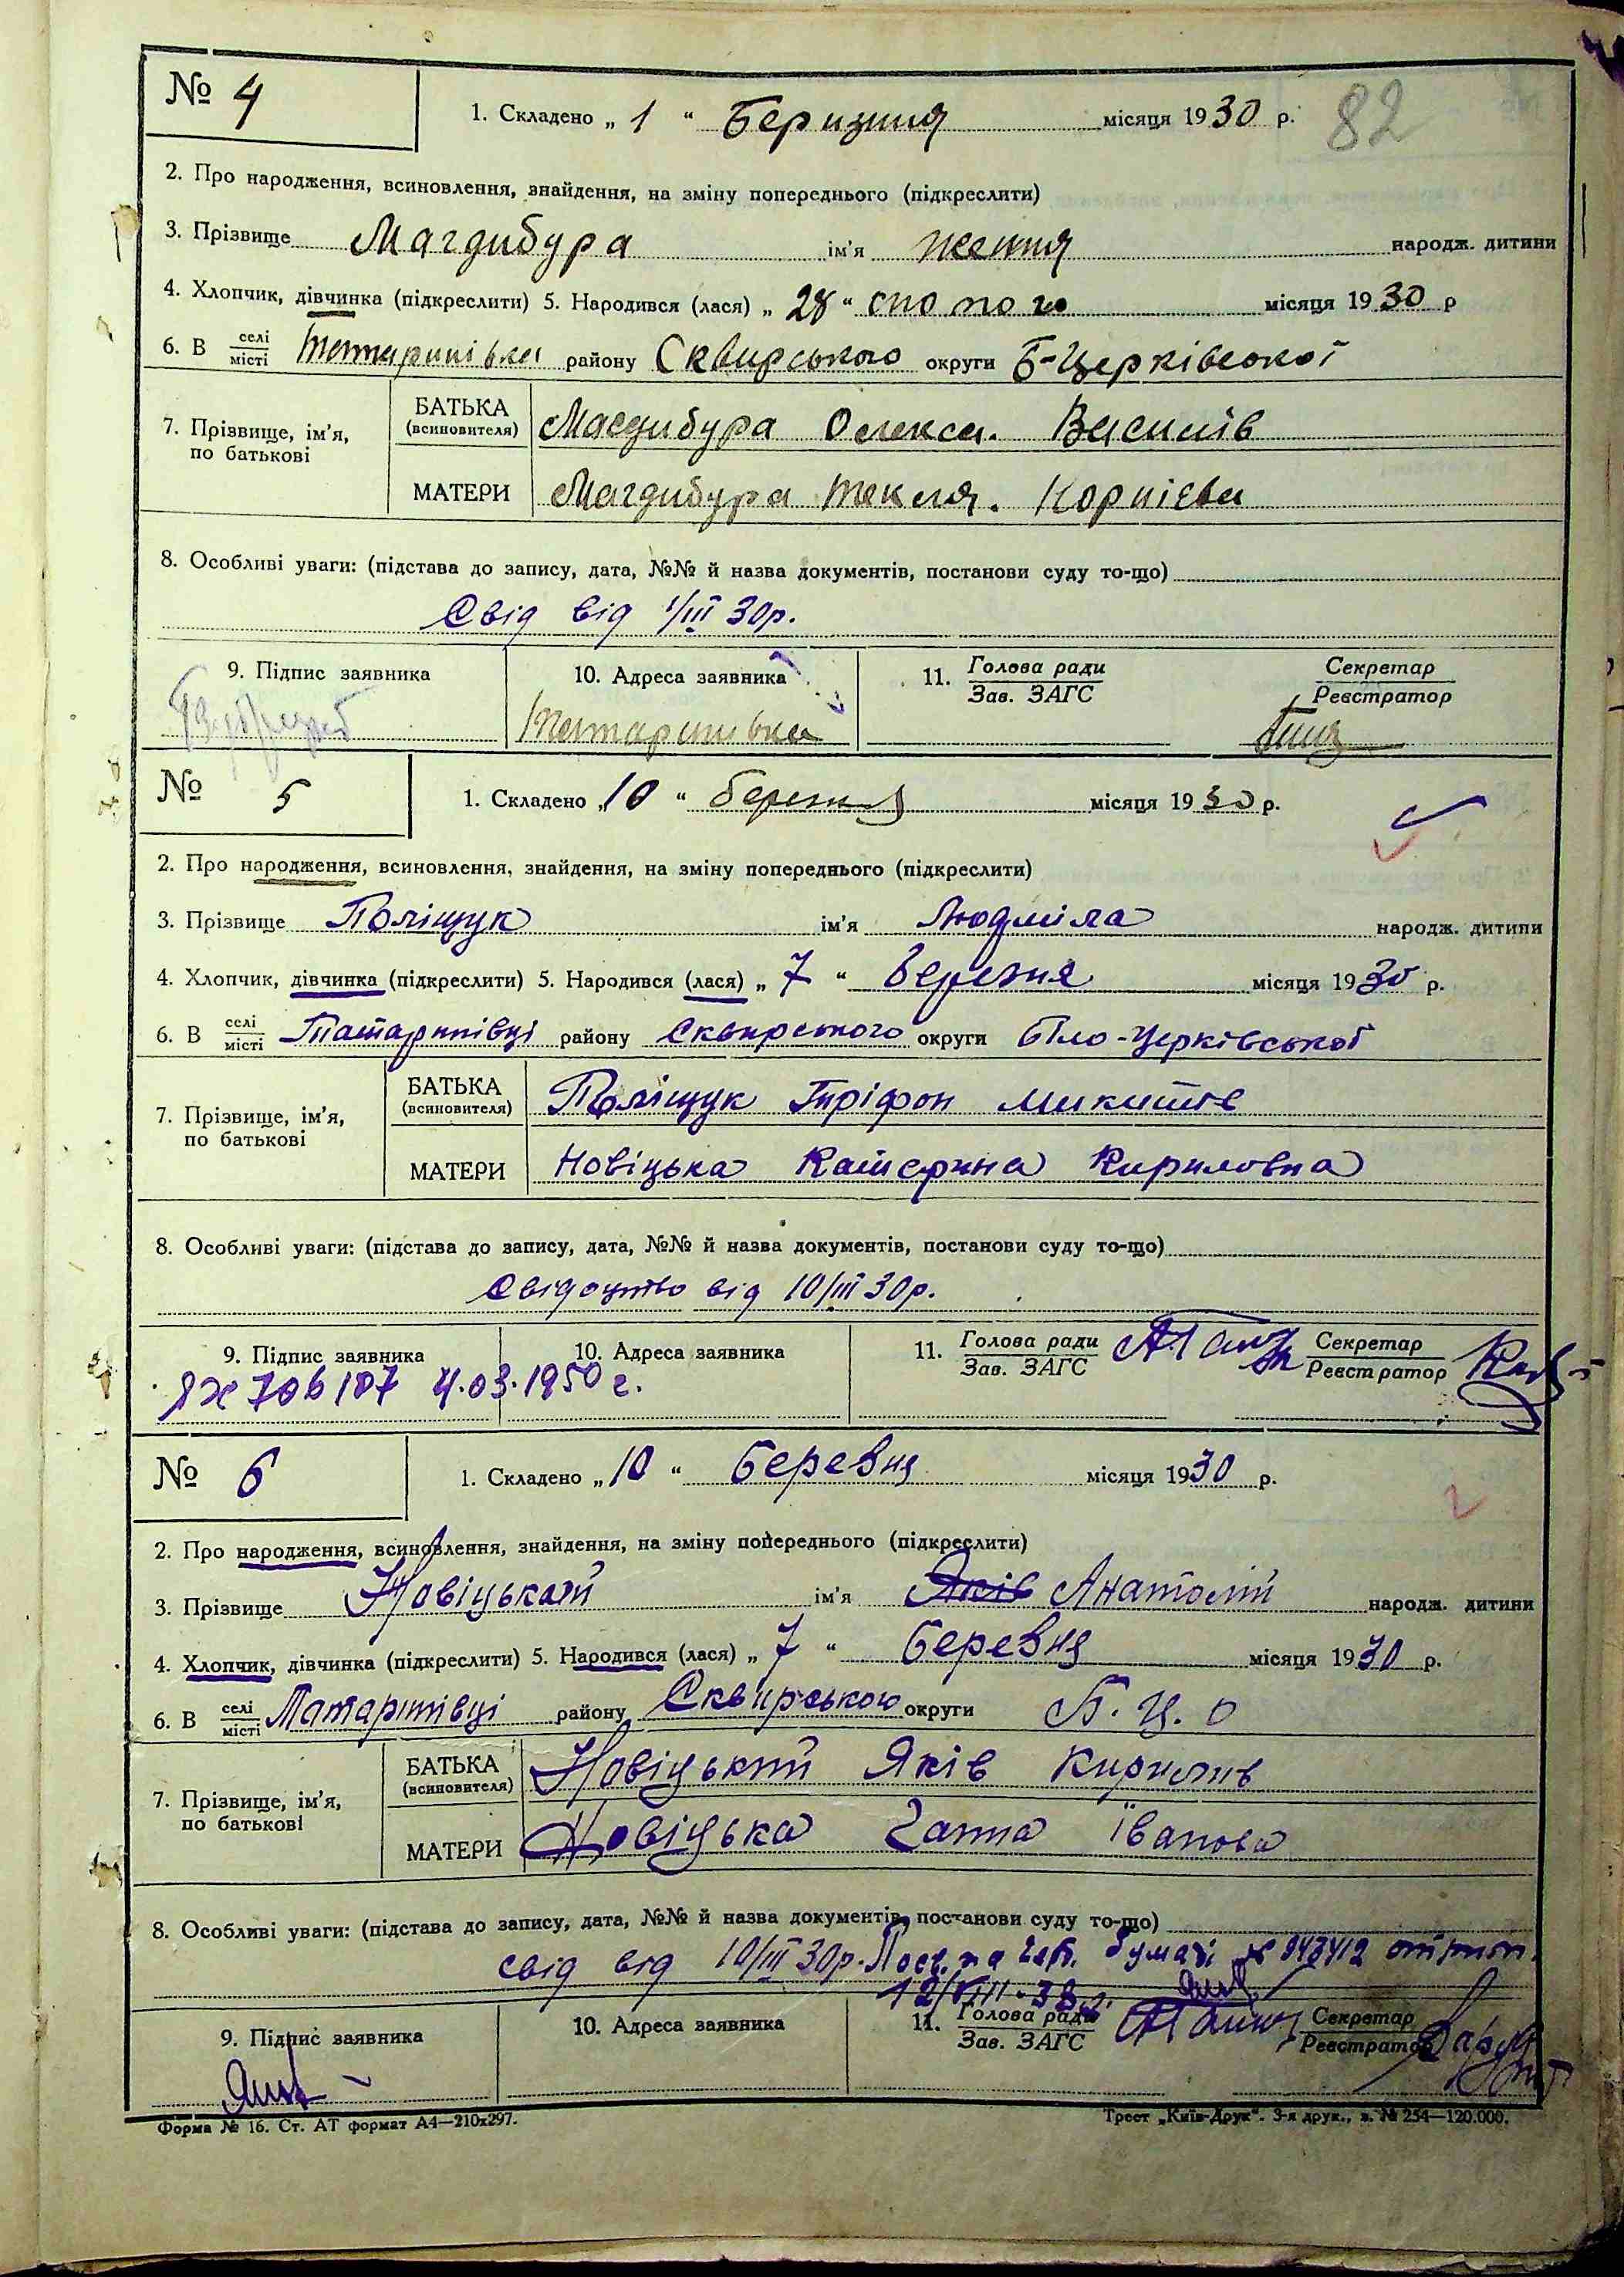 № 4
1. Складено „ 1 “ Беризиня місяця 1930 р. 82
2. Про народження, всиновлення, знайдення, на зміну попереднього (підкреслити)
3. Прізвище Магдибура ім'я ження народж. дитини
4. Хлопчик, дівчинка (підкреслити) 5. Народився (лася) „ 28 “ місяця 1930 р
6. В селі/місті Татаринівка району Сквирського округи Б-Церківської
7. Прізвище, ім'я, по батькові
БАТЬКА (всиновителя) Магдибура Олекса. Василів
МАТЕРИ Магдибура Текля. Корнієва
8. Особливі уваги: (підстава до запису, дата, №№ й назва документів, постанови суду то-що)
Свід від 1/III 30р.
9. Підпис заявника 10. Адреса заявника 11. Голова ради/Зав. ЗАГС Секретар/Реєстратор
Татаринівка
№ 5
1. Складено „ 10 “ березня місяця 1930 р.
2. Про народження, всиновлення, знайдення, на зміну попереднього (підкреслити)
3. Прізвище Поліщук ім'я Людміла народж. дитини
4. Хлопчик, дівчинка (підкреслити) 5. Народився (лася) „ 7 “ березня місяця 1930 р.
6. В селі/місті Татаринівці району Сквирського округи Біло-Церківської
7. Прізвище, ім'я, по батькові
БАТЬКА (всиновителя) Поліщук Тріфон Микитів
МАТЕРИ Новіцька Катерина Кириловна
8. Особливі уваги: (підстава до запису, дата, №№ й назва документів, постанови суду то-що)
Свідоцтво від 10/III 30р.
9. Підпис заявника 10. Адреса заявника 11. Голова ради/Зав. ЗАГС Секретар/Реєстратор
706107 4.03.1950 г.
№ 6
1. Складено „ 10 “ Березня місяця 1930 р.
2. Про народження, всиновлення, знайдення, на зміну попереднього (підкреслити)
3. Прізвище Новіцький ім'я Яків Анатолій народж. дитини
4. Хлопчик, дівчинка (підкреслити) 5. Народився (лася) „ 7 “ Березня місяця 1930 р.
6. В селі/місті Татаринівці району Сквирського округи Б. Ц. О
7. Прізвище, ім'я, по батькові
БАТЬКА (всиновителя) Новіцький Яків Кирилив
МАТЕРИ Новіцька Ганна Іванова
8. Особливі уваги: (підстава до запису, дата, №№ й назва документів, постанови суду то-що)
свід від 10/III 30р. на бумазі
12/VIII-38р.
9. Підпис заявника 10. Адреса заявника 11. Голова ради/Зав. ЗАГС Секретар/Реєстратор
Форма № 16. Ст. АТ формат А4—210х297. Трест „Київ-Друк“. 3-я друк., з. № 254—120.000.